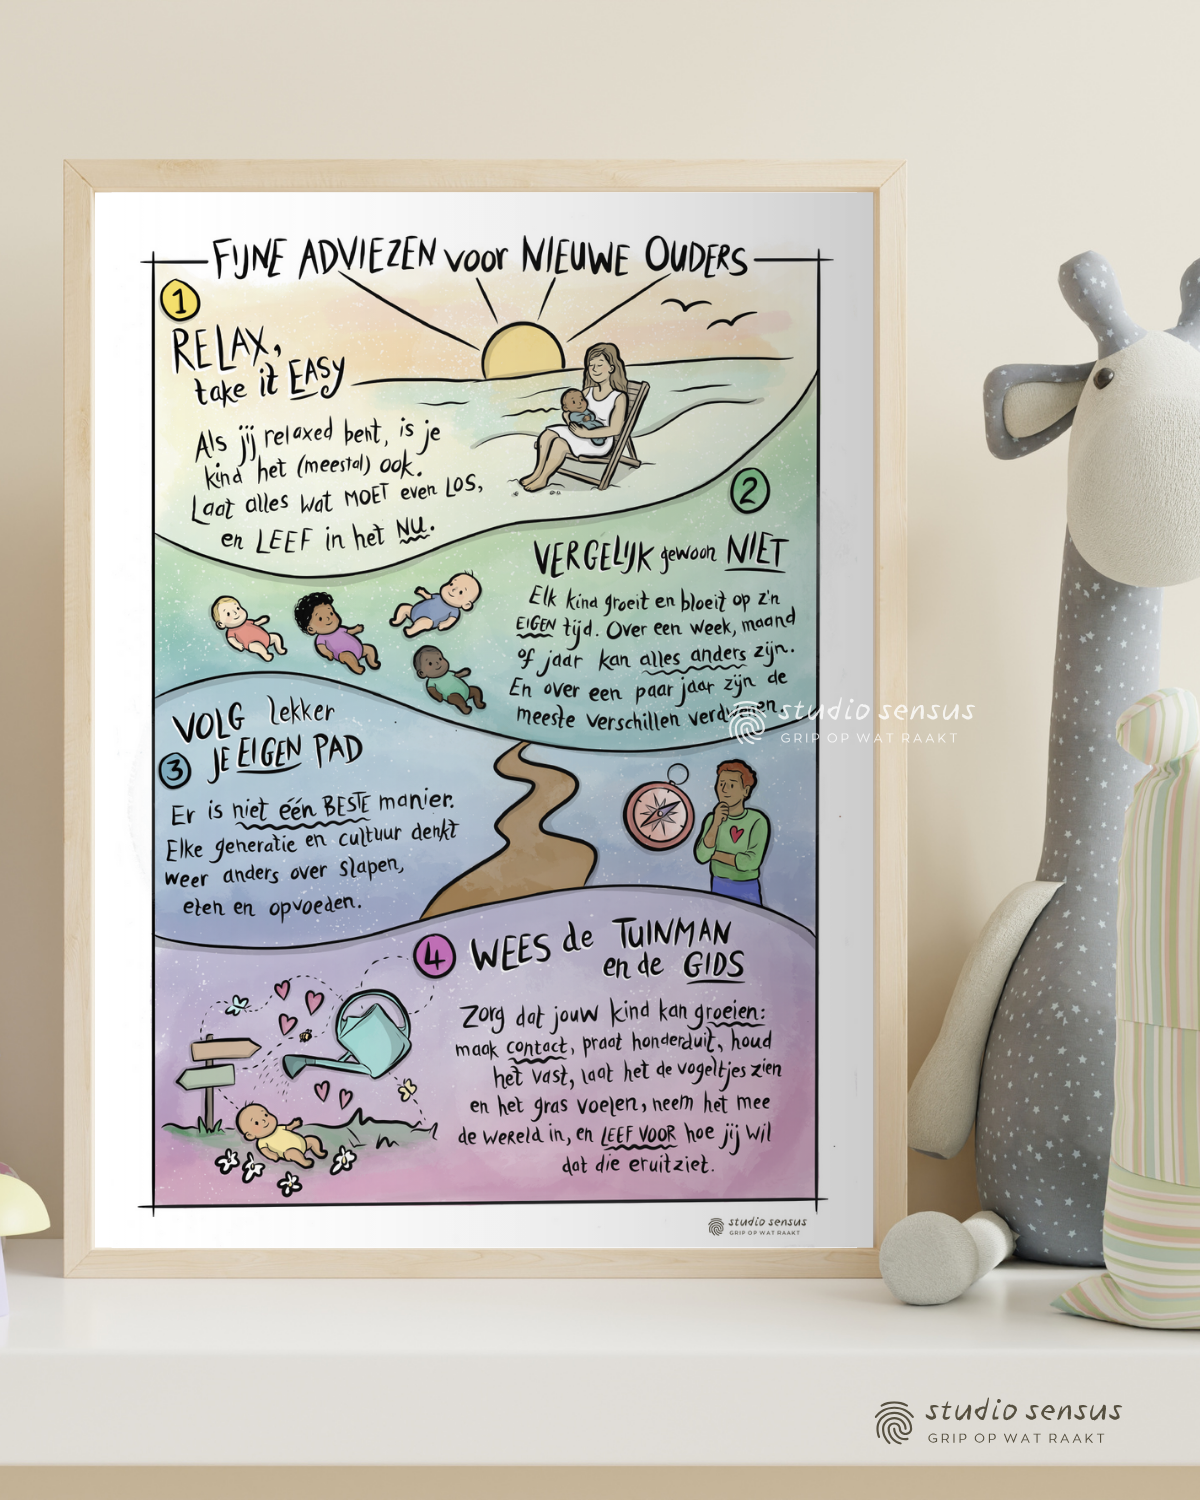 FIJNE ADVIEZEN voor NIEUWE OUDERS
1
RELAX,
take it EASY
Als jij relaxed bent, is je
kind het (meestal) ook.
Laat alles wat MOET even LOS,
en LEEF in het NU.
2
VERGELIJK gewoon NIET
Elk kind groeit en bloeit op z'n
EIGEN tijd. Over een week, maand
of jaar kan alles anders zijn.
En over een paar jaar zijn de
meeste verschillen verdwenen.
studio sensus
GRIP OP WAT RAAKT
VOLG lekker
JE EIGEN PAD
3
Er is niet één BESTE manier.
Elke generatie en cultuur denkt
weer anders over slapen,
eten en opvoeden.
4
WEES de TUINMAN
en de GIDS
Zorg dat jouw kind kan groeien:
maak contact, praat honderduit, houd
het vast, laat het de vogeltjes zien
en het gras voelen, neem het mee
de wereld in, en LEEF VOOR hoe jij wil
dat die eruitziet.
studio sensus
GRIP OP WAT RAAKT
studio sensus
GRIP OP WAT RAAKT